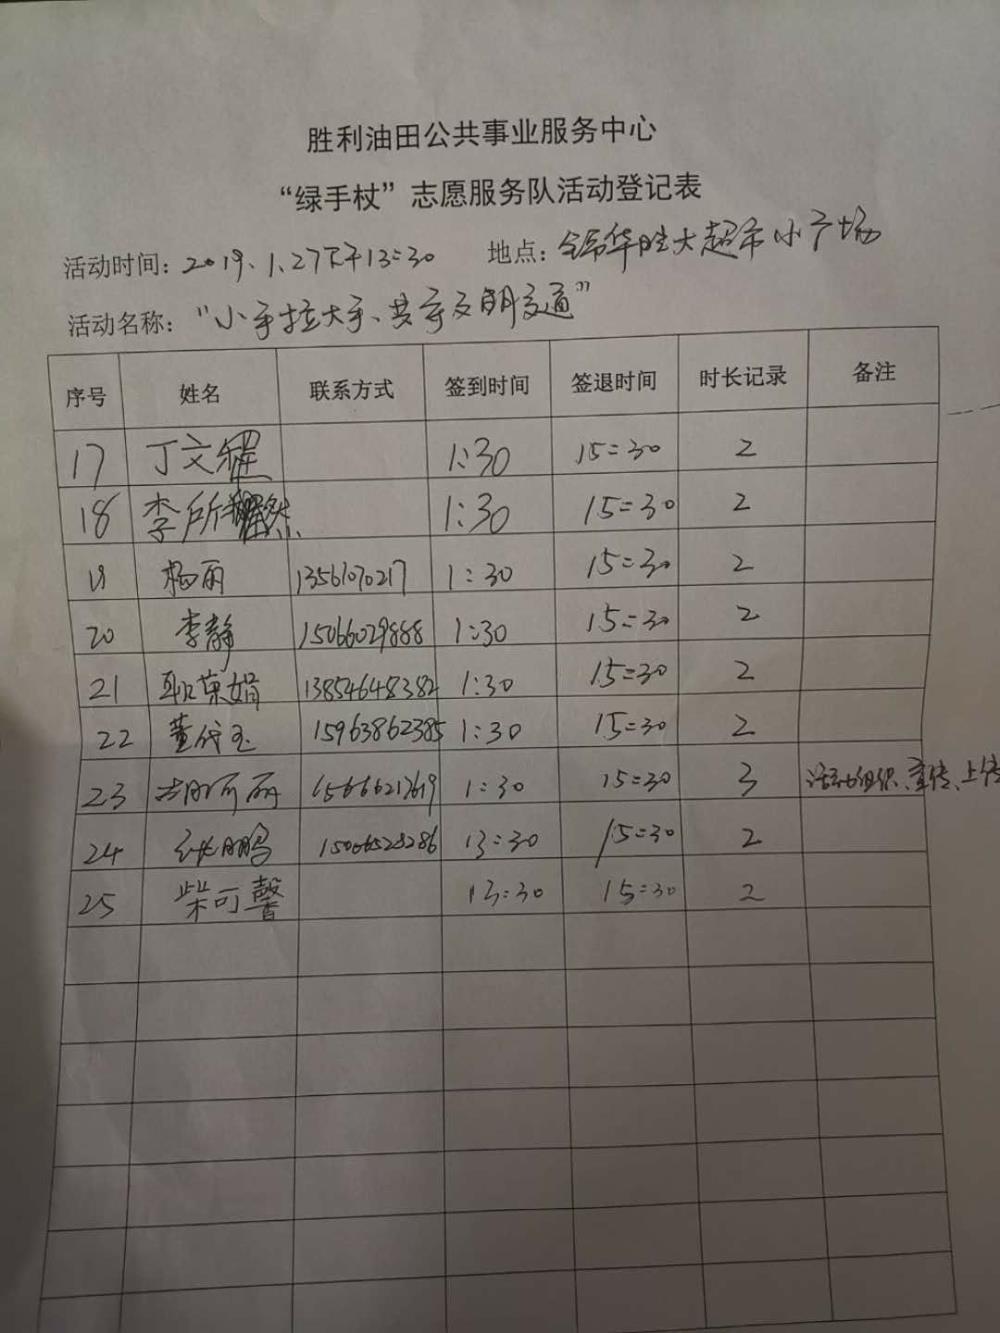 胜利油田公共事业服务中心
“绿手杖”志愿服务队活动登记表
活动时间：2019、1、27下午13:30 地点：锦华胜大超市小广场
活动名称：“小手拉大手、共享文明交通”
序号 姓名 联系方式 签到时间 签退时间 时长记录 备注
17 丁文耀 1:30 15:30 2
18 李所 然 1:30 15:30 2
19 杨丽 13561070217 1:30 15:30 2
20 李静 15066029888 1:30 15:30 2
21 耿荣娟 13854648382 1:30 15:30 2
22 董代玉 15963862385 1:30 15:30 2
23 丽 1:30 15:30 3 活动组织、宣传、上传
24 鹏 13:30 15:30 2
25 柴可馨 13:30 15:30 2